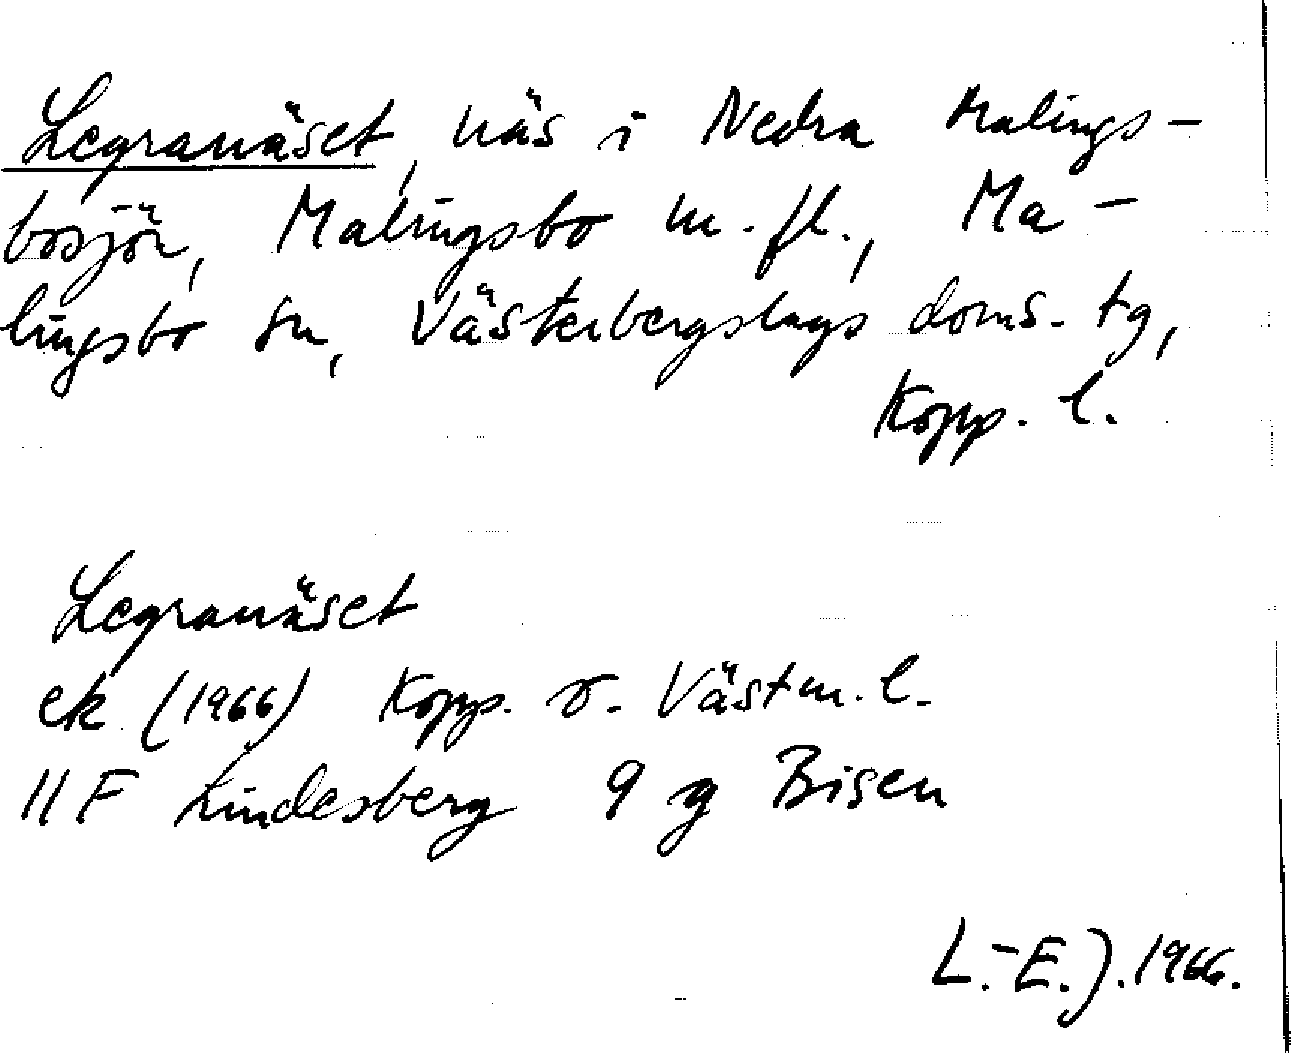 Legranäset, näs i Nedra Malings-
bosjön, Malingsbo m. fl., Ma-
lingsbo sn, Västerbergslags doms. tg,
Kopp. l.
Legranäset
ek (1966) Kopp. o. Västm. l.
11F Lindesberg 9 g Bisen
L.-E.J. 1966.